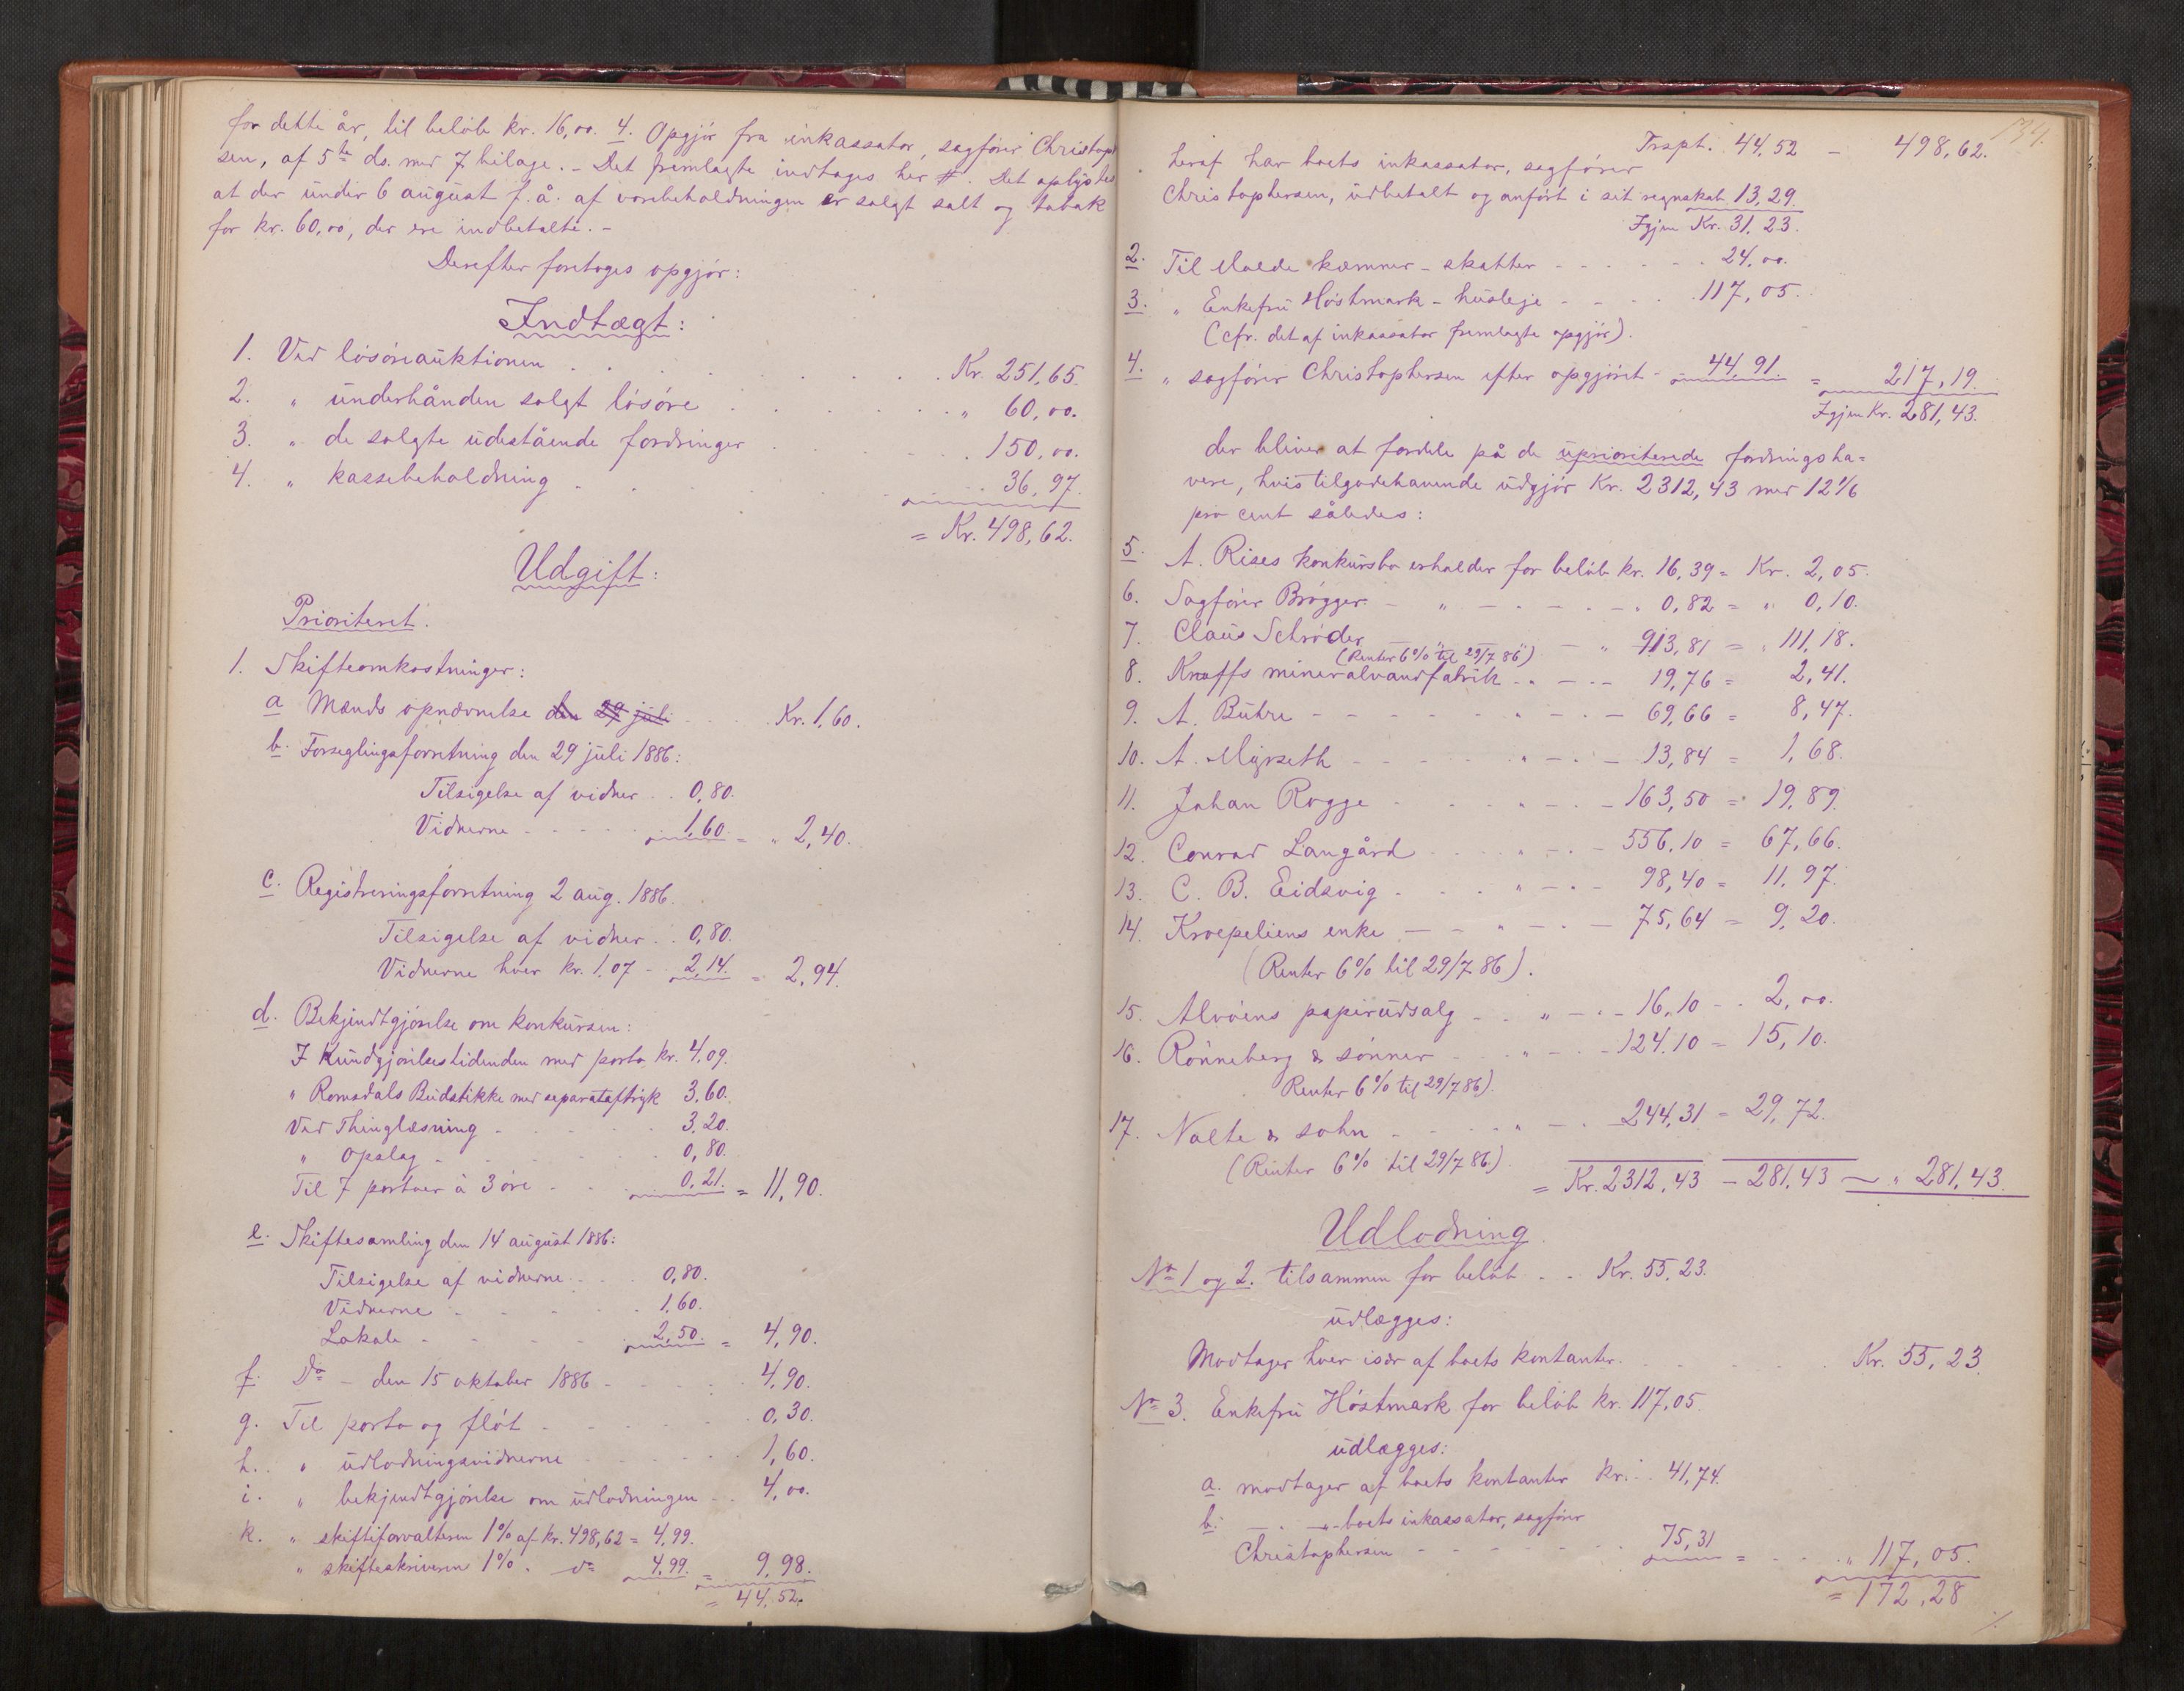 for dette år, til beløb kr. 16,00. 4. Opgjør fra inkassator, sagfører Christoph
sen, af 5te ds. med 7 bilage. - Det fremlagte indtages her #. Det oplystes
at der under 6 august f. å. af varebeholdningen er solgt salt og tobak
for kr. 60,00, der ere indbetalte. -
Derefter foretoges opgjør:
Indtægt:
1. Ved løsøreauktionen . . . Kr. 251,65.
2. " underhånden solgt løsøre . . . " 60,00.
3. " de solgte udestående fordringer . . . 150,00.
4. " kassebeholdning . . . 36,97.
= Kr. 498,62.
Udgift:
Prioriteret.
1. Skifteomkostninger:
a Mænds opnævnelse den 29 juli . . . Kr. 1,60.
b. Forseglingsforretning den 29 juli 1886:
Tilsigelse af vidner . . 0,80.
Vidnerne - - - 1,60 = " 2,40.
c. Registreringsforretning 2 aug. 1886.
Tilsigelse af vidner . . 0,80.
Vidnerne hver kr. 1,07 - 2,14. = 2,94.
d. Bekjendtgjørelse om konkursen:
I Kundgjørelsestidenden med porto kr. 4,09.
" Romsdals Budstikke med separataftryk 3,60.
Ved Thinglæsning - - - 3,20.
" Opslag - - - 0,80.
Til 7 portoer à 3 øre - - 0,21. = 11,90.
e. Skiftesamling den 14 august 1886:
Tilsigelse af vidnerne . . 0,80.
Vidnerne - - - 1,60.
Lokale - - - 2,50. = 4,90.
f. Do - den 15 oktober 1886 - - - 4,90.
g. Til porto og fløt - - - 0,30.
h. " udlodningsvidnerne - - - 1,60.
i. " bekjendtgjørelse om udlodningen . . 4,00.
k. " skifteforvalteren 1% af kr. 498,62 = 4,99.
" skifteskriveren 1% . do 4,99. = 9,98.
= 44,52.
134.
Trspt. 44,52 - 498,62.
heraf har boets inkassator, sagfører
Christophersen, udbetalt og anført i sit regnskab 13,29.
Igjen Kr. 31,23.
2. Til Molde kæmner - skatter - - - 24,00.
3. " Enkefru Høstmark - husleje - - - 117,05.
(cfr. det af inkassator fremlagte opgjør).
4. " sagfører Christophersen efter opgjøret - 44,91. = 217,19.
Igjen Kr. 281,43.
der bliver at fordele på de uprioriterede fordringsha=
vere, hvis tilgodehavende udgjør Kr. 2312,43 med 12 1/6
pro cent således:
5. A. Rises konkursbo erholder for beløb kr. 16,39 = Kr. 2,05.
6. Sagfører Brøgger - " - - - 0,82 = " 0,10.
7. Claus Schrøder - " - " 913,81 = " 111,18.
(Renter 6% til 29/7 86)
8. Knoffs mineralvandfabrik . " - - 19,76 = 2,41.
9. A. Buhre - - - " - - 69,66 = 8,47.
10. A. Myrseth - - - " - - 13,84 = 1,68.
11. Johan Rogge - - - " - - 163,50 = 19,89.
12. Conrad Langård . . . " - - 556,10 = 67,66.
13. C. B. Eidsvig - . . " - - 98,40 = 11,97.
14. Kroepeliens enke - - " - - 75,64 = 9,20.
(Renter 6% til 29/7 86).
15. Alvøens papirudsalg - . " - - 16,10 - . 2,00.
16. Rønneberg & sønner - . " - - 124,10 = 15,10.
Renter 6% til 29/7 86).
17. Nolte & sohn - - - " - . 244,31 = 29,72.
(Renter 6% til 29/7 86)
= Kr. 2312,43 - 281,43 - " 281,43.
Udlodning.
No 1 og 2. tilsammen for beløb . . Kr. 55,23.
udlægges:
Modtager hver især af boets kontanter . . . Kr. 55,23.
No 3. Enkefru Høstmark for beløb kr. 117,05.
udlægges:
a. modtager af boets kontanter kr. . 41,74.
b. - " - boets inkassator, sagfører
Christophersen - - - 75,31 = . . " 117,05.
= 172,28